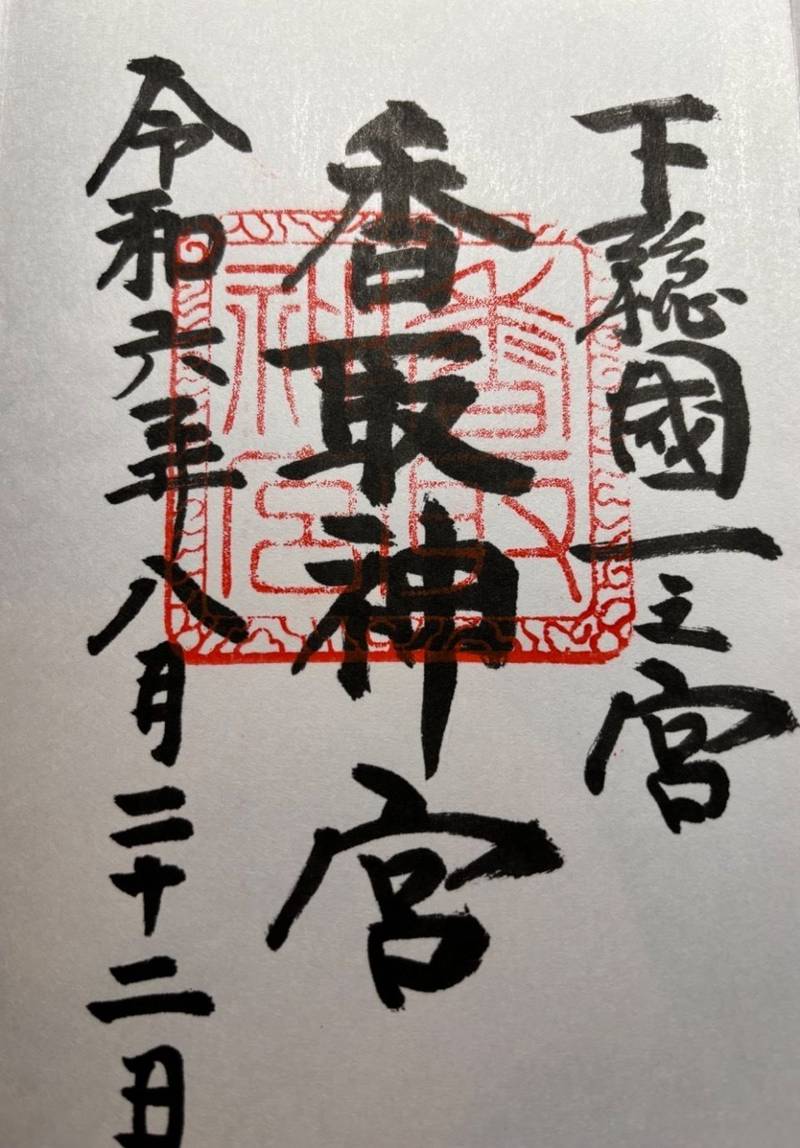 下総國一之宮
香取神宮
令和六年八月二十二日
香取神宮